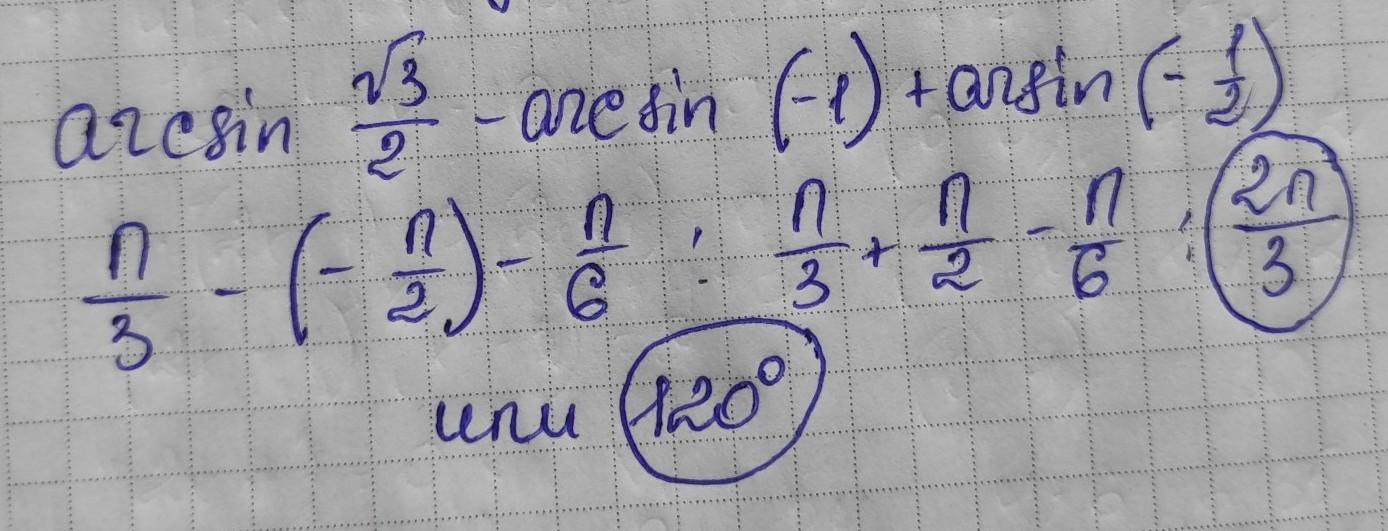 arcsin √3/2 - arcsin (-1) + arsin (- 1/2)
π/3 - (- π/2) - π/6 : π/3 + π/2 - π/6 : 2π/3
или 120°